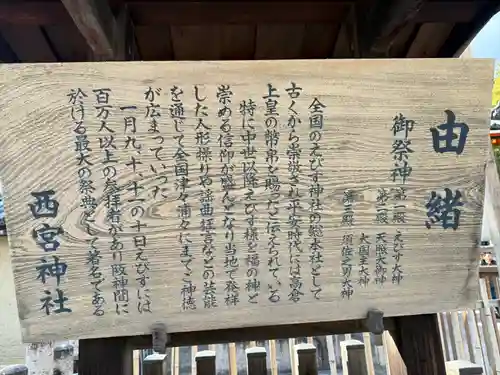 由緒
御祭神
第一殿 えびす大神
第二殿 天照大御神
大国主大神
第三殿 須佐之男大神
全国のえびす神社の総本社として
古くから崇敬され平安時代には高倉
上皇の幣帛を賜ったと伝えられている
特に中世以降えびす様を福の神と
崇める信仰が盛んになり当地で発祥
した人形操りや謡曲狂言などの芸能
を通じて全国津々浦々にまでご神徳
が広まっていった
一月九、十、十一の十日えびすには
百万人以上の参拝者があり阪神間に
於ける最大の祭典として著名である
西宮神社